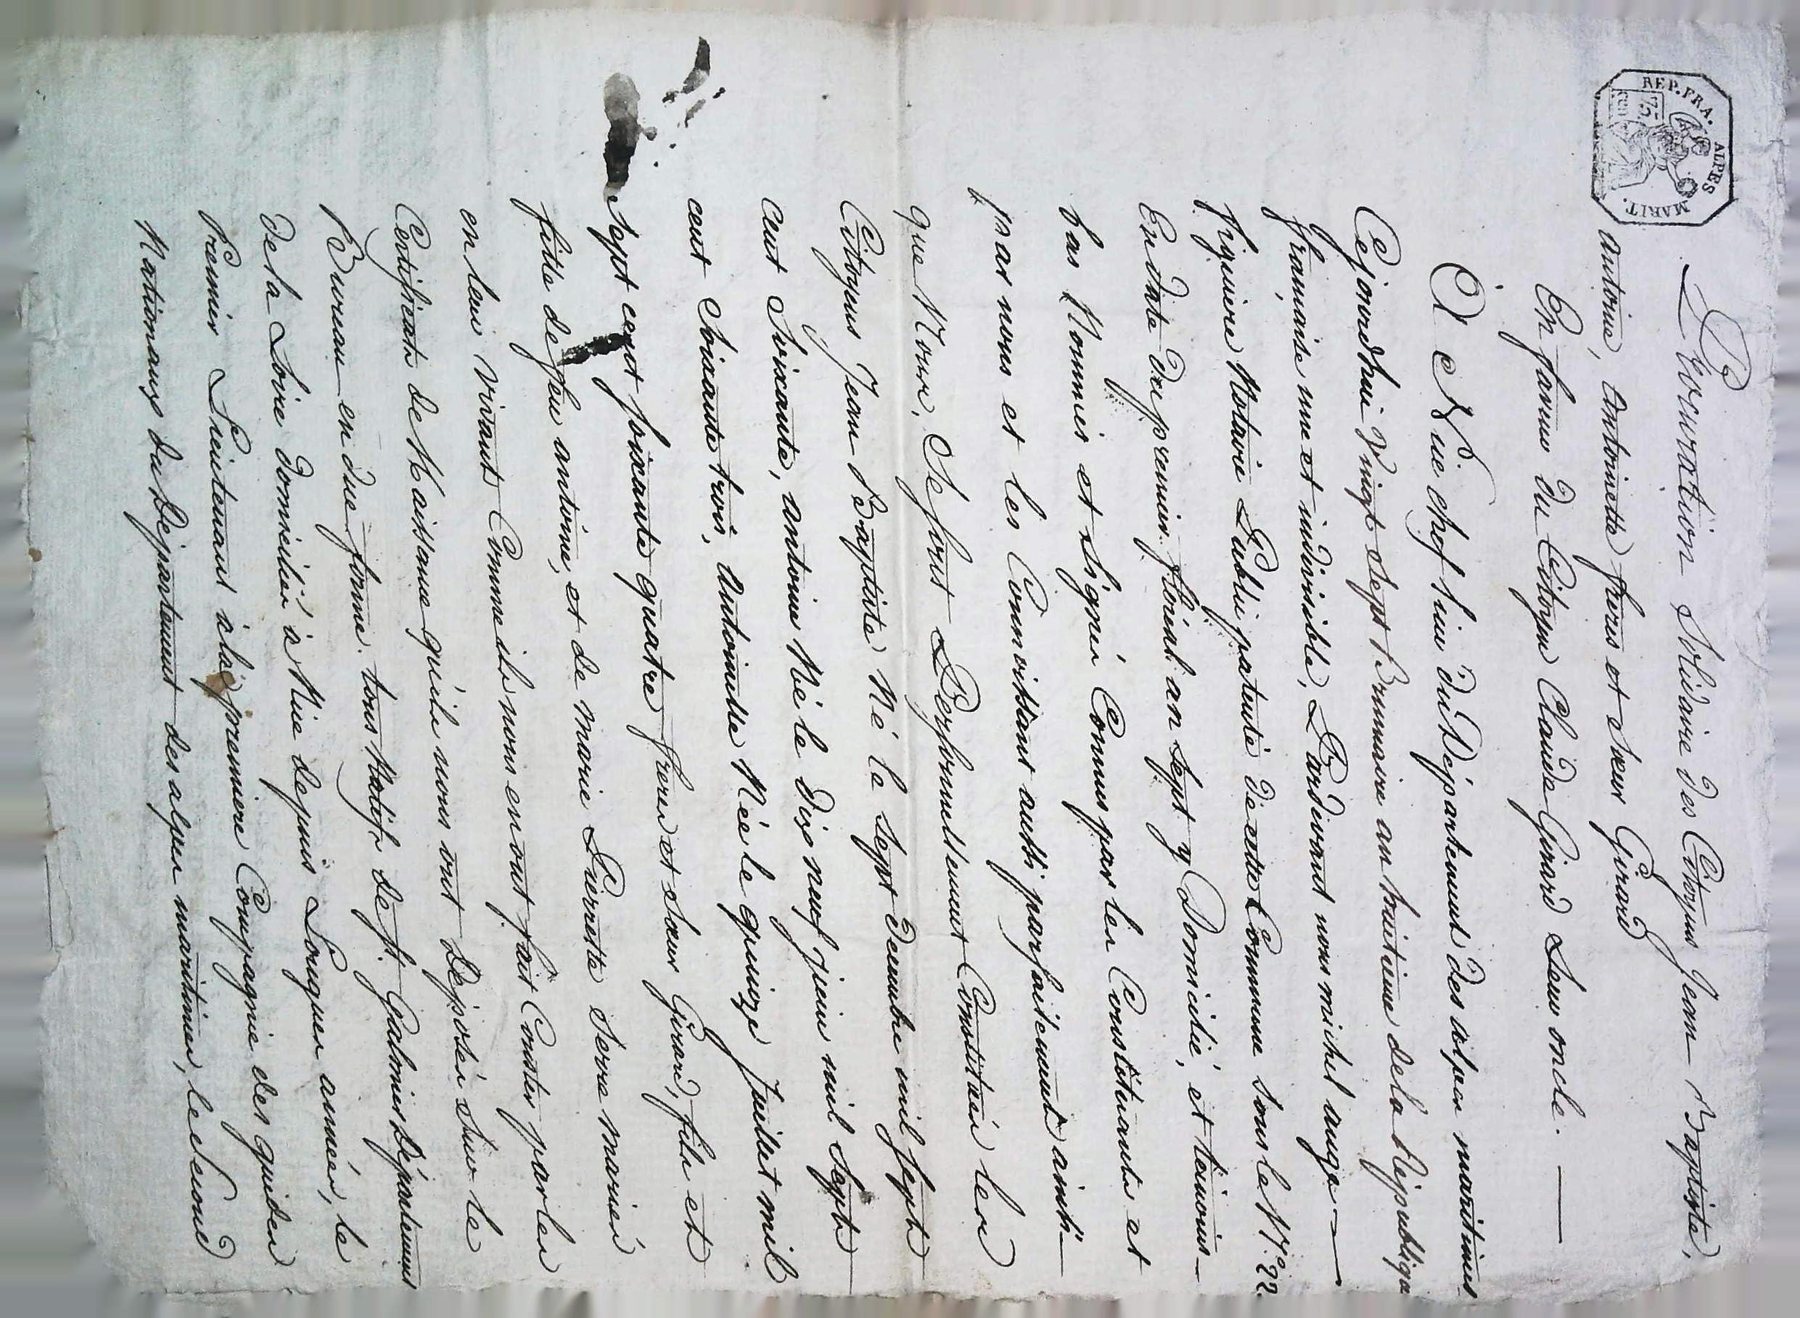 REP. FRA. ALPES MARIT.
75
Procuration Solidaire des Citoyens Jean Baptiste,
antoine, antoinette freres et soeur Girard
En faveur du Citoyen Claude Girard Leur oncle.
A Nice chef lieu du Département des alpes maritimes
Cejourdhui Vingt sept Brumaire an huitieme dela Republique
française une et indivisible, Pardevant nous michel ange
figuiere Notaire Public patenté de cette Commune sous le N.º 22
En date du premier floréal an sept y Domicilié, et temoins
bas Nommés et signés Connus par les Constituants et
par nous et les Connoissant aussi parfaitement ainsi
que Nous, Se sont Personnellement Constitués les
Citoyens Jean Baptiste Né le sept decembre mil sept
cent Soixante, antoine Né le dix neuf juin mil Sept
cent Soixante trois, antoinette Née le quinze Juillet mil
sept cent soixante quatre freres et soeur Girard, fils et
fille de feu antoine, et de marie Pierrette Serre mariés
en leur vivant Comme ils nous en ont fait Conster par les
Certificats de Naissance qu'ils nous ont Déposés sur le
Bureau en due forme tous Natifs de st. Galmier Département
dela Loire domiciliés à Nice depuis Longues années, le
Premier Lieutenant àla premiere Compagnie des guides
Nationaux du Département des alpes maritimes, le second